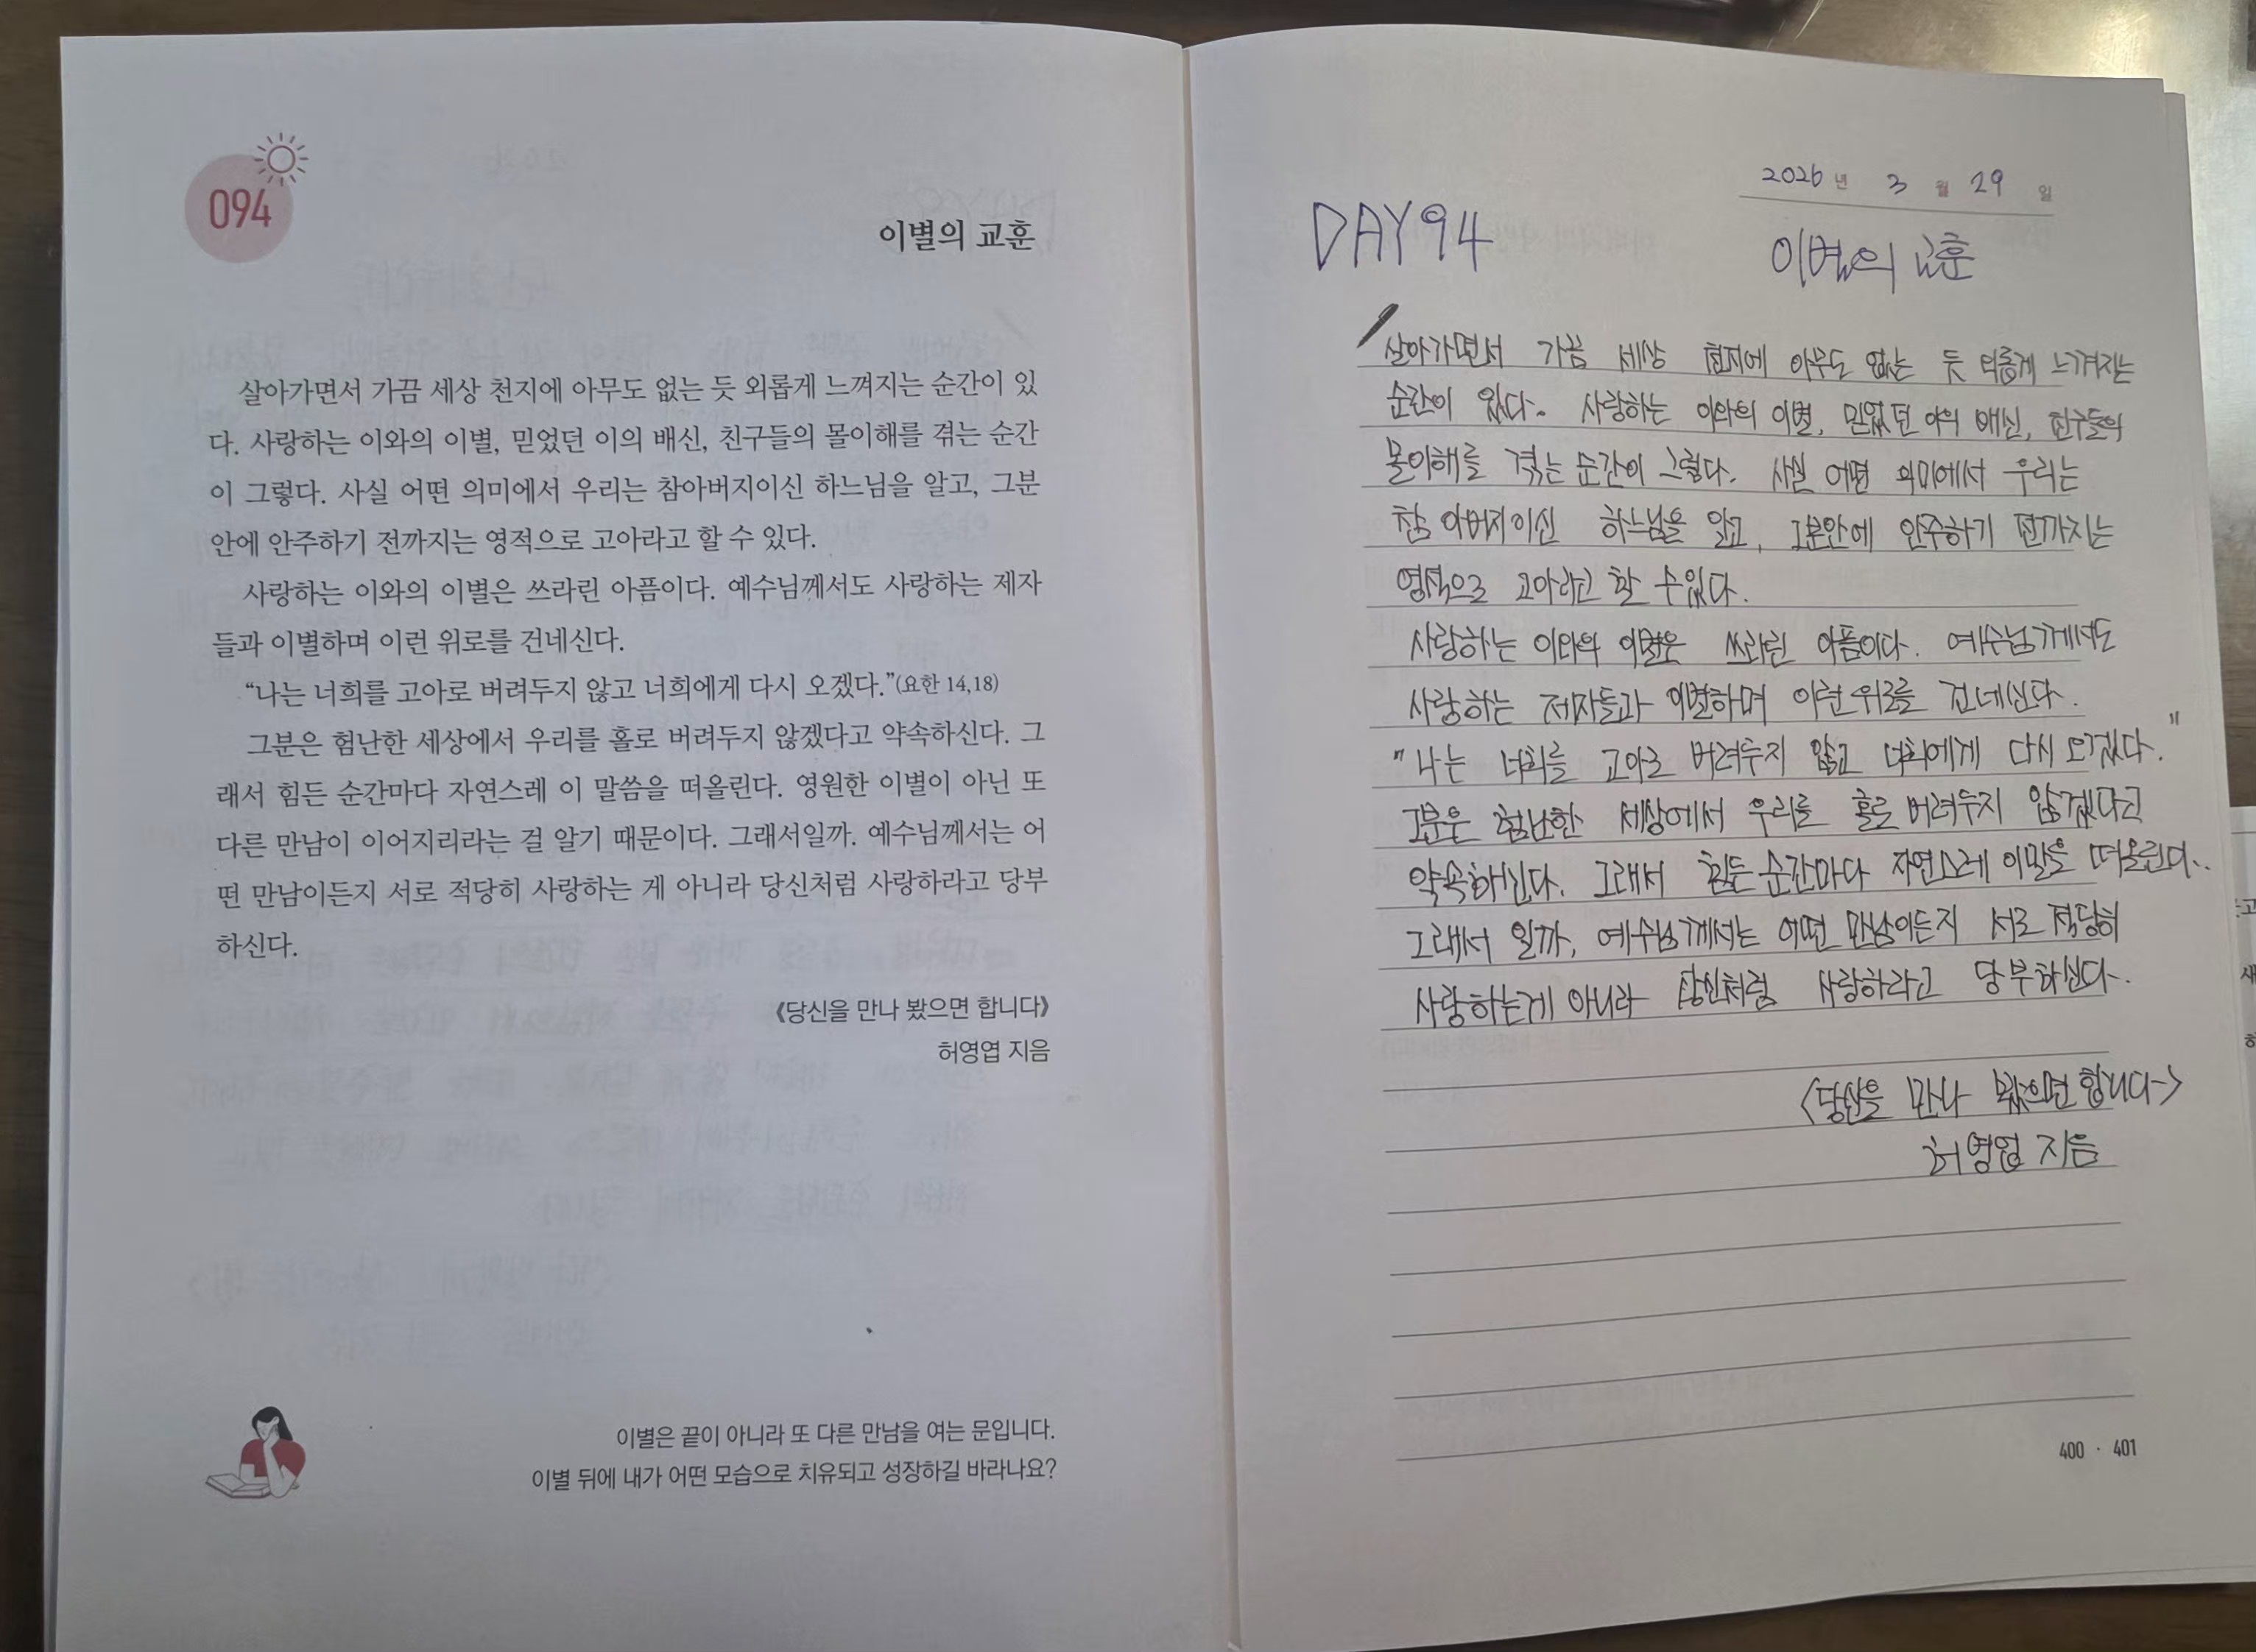 094
이별의 교훈
살아가면서 가끔 세상 천지에 아무도 없는 듯 외롭게 느껴지는 순간이 있
다. 사랑하는 이와의 이별, 믿었던 이의 배신, 친구들의 몰이해를 겪는 순간
이 그렇다. 사실 어떤 의미에서 우리는 참아버지이신 하느님을 알고, 그분
안에 안주하기 전까지는 영적으로 고아라고 할 수 있다.
사랑하는 이와의 이별은 쓰라린 아픔이다. 예수님께서도 사랑하는 제자
들과 이별하며 이런 위로를 건네신다.
“나는 너희를 고아로 버려두지 않고 너희에게 다시 오겠다.”(요한 14,18)
그분은 험난한 세상에서 우리를 홀로 버려두지 않겠다고 약속하신다. 그
래서 힘든 순간마다 자연스레 이 말씀을 떠올린다. 영원한 이별이 아닌 또
다른 만남이 이어지리라는 걸 알기 때문이다. 그래서일까. 예수님께서는 어
떤 만남이든지 서로 적당히 사랑하는 게 아니라 당신처럼 사랑하라고 당부
하신다.
《당신을 만나 봤으면 합니다》
허영엽 지음
이별은 끝이 아니라 또 다른 만남을 여는 문입니다.
이별 뒤에 내가 어떤 모습으로 치유되고 성장하길 바라나요?
2026 년 3 월 29 일
DAY 94
이별의 교훈
살아가면서 가끔 세상 천지에 아무도 없는 듯 외롭게 느껴지는
순간이 있다. 사랑하는 이와의 이별, 믿었던 이의 배신, 친구들의
몰이해를 겪는 순간이 그렇다. 사실 어떤 의미에서 우리는
참 아버지이신 하느님을 알고, 그분안에 안주하기 전까지는
영적으로 고아라고 할 수있다.
사랑하는 이와의 이별은 쓰라린 아픔이다. 예수님께서도
사랑하는 제자들과 이별하며 이런 위로를 건네신다.
"나는 너희를 고아로 버려두지 않고 너희에게 다시 오겠다."
그분은 험난한 세상에서 우리를 홀로 버려두지 않겠다고
약속하신다. 그래서 힘든 순간마다 자연스레 이말을 떠올린다.
그래서 일까, 예수님께서는 어떤 만남이든지 서로 적당히
사랑하는게 아니라 당신처럼 사랑하라고 당부하신다.
<당신을 만나 봤으면 합니다>
허영엽 지음
400 · 401